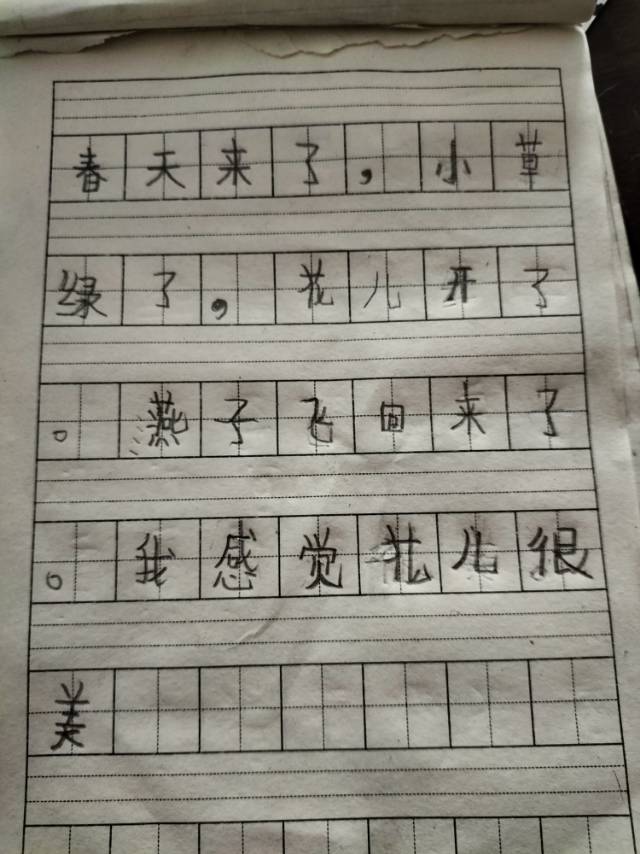 春天来了，小草
绿了，花儿开了
。燕子飞回来了
。我感觉花儿很
美